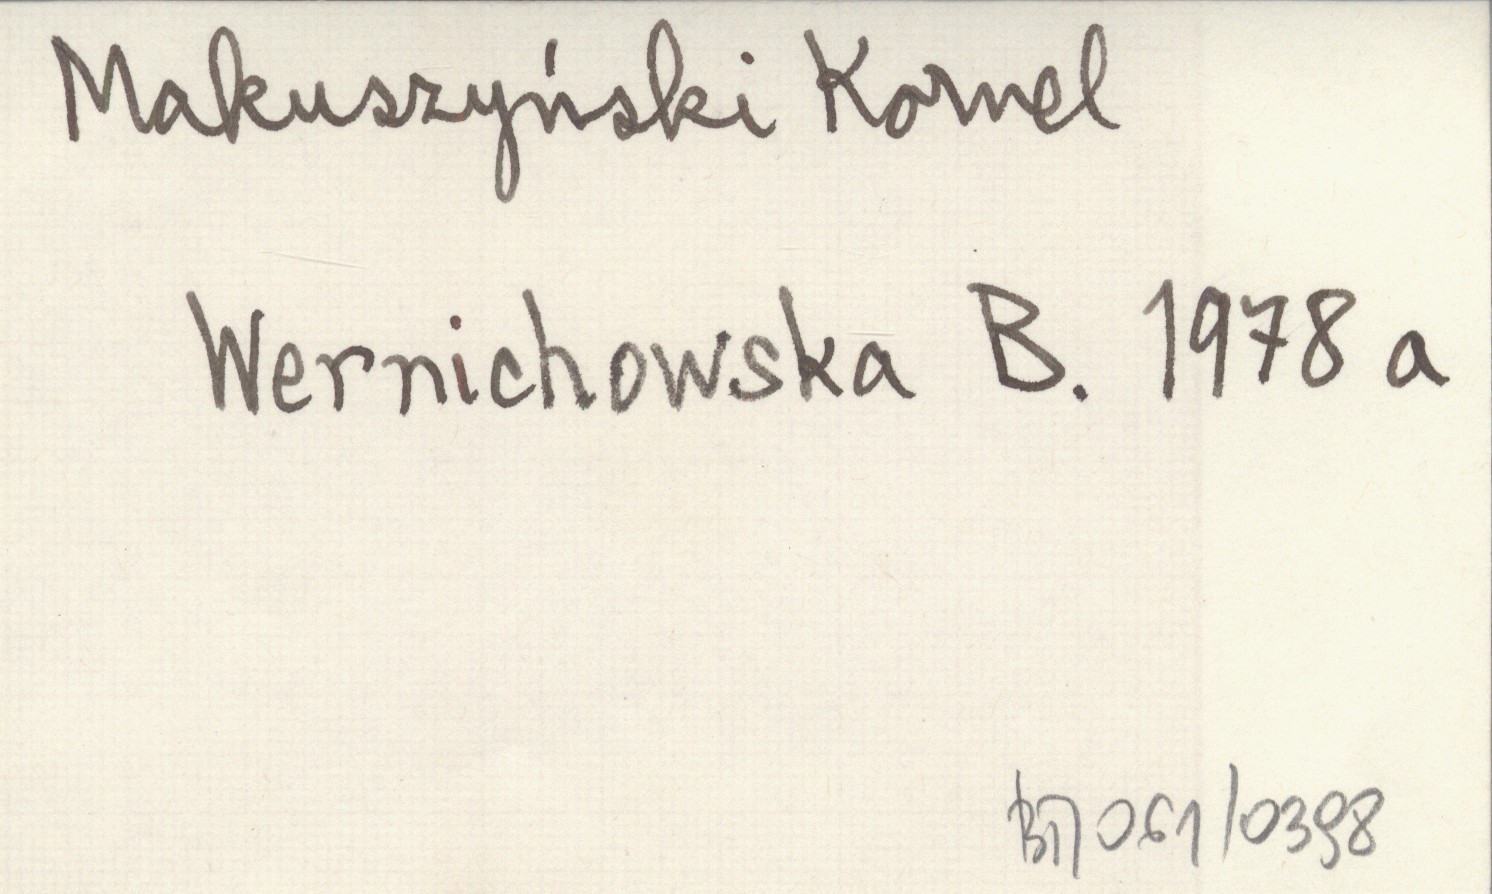 Makuszyński Kornel
Wernichowska B. 1978 a
061/0398